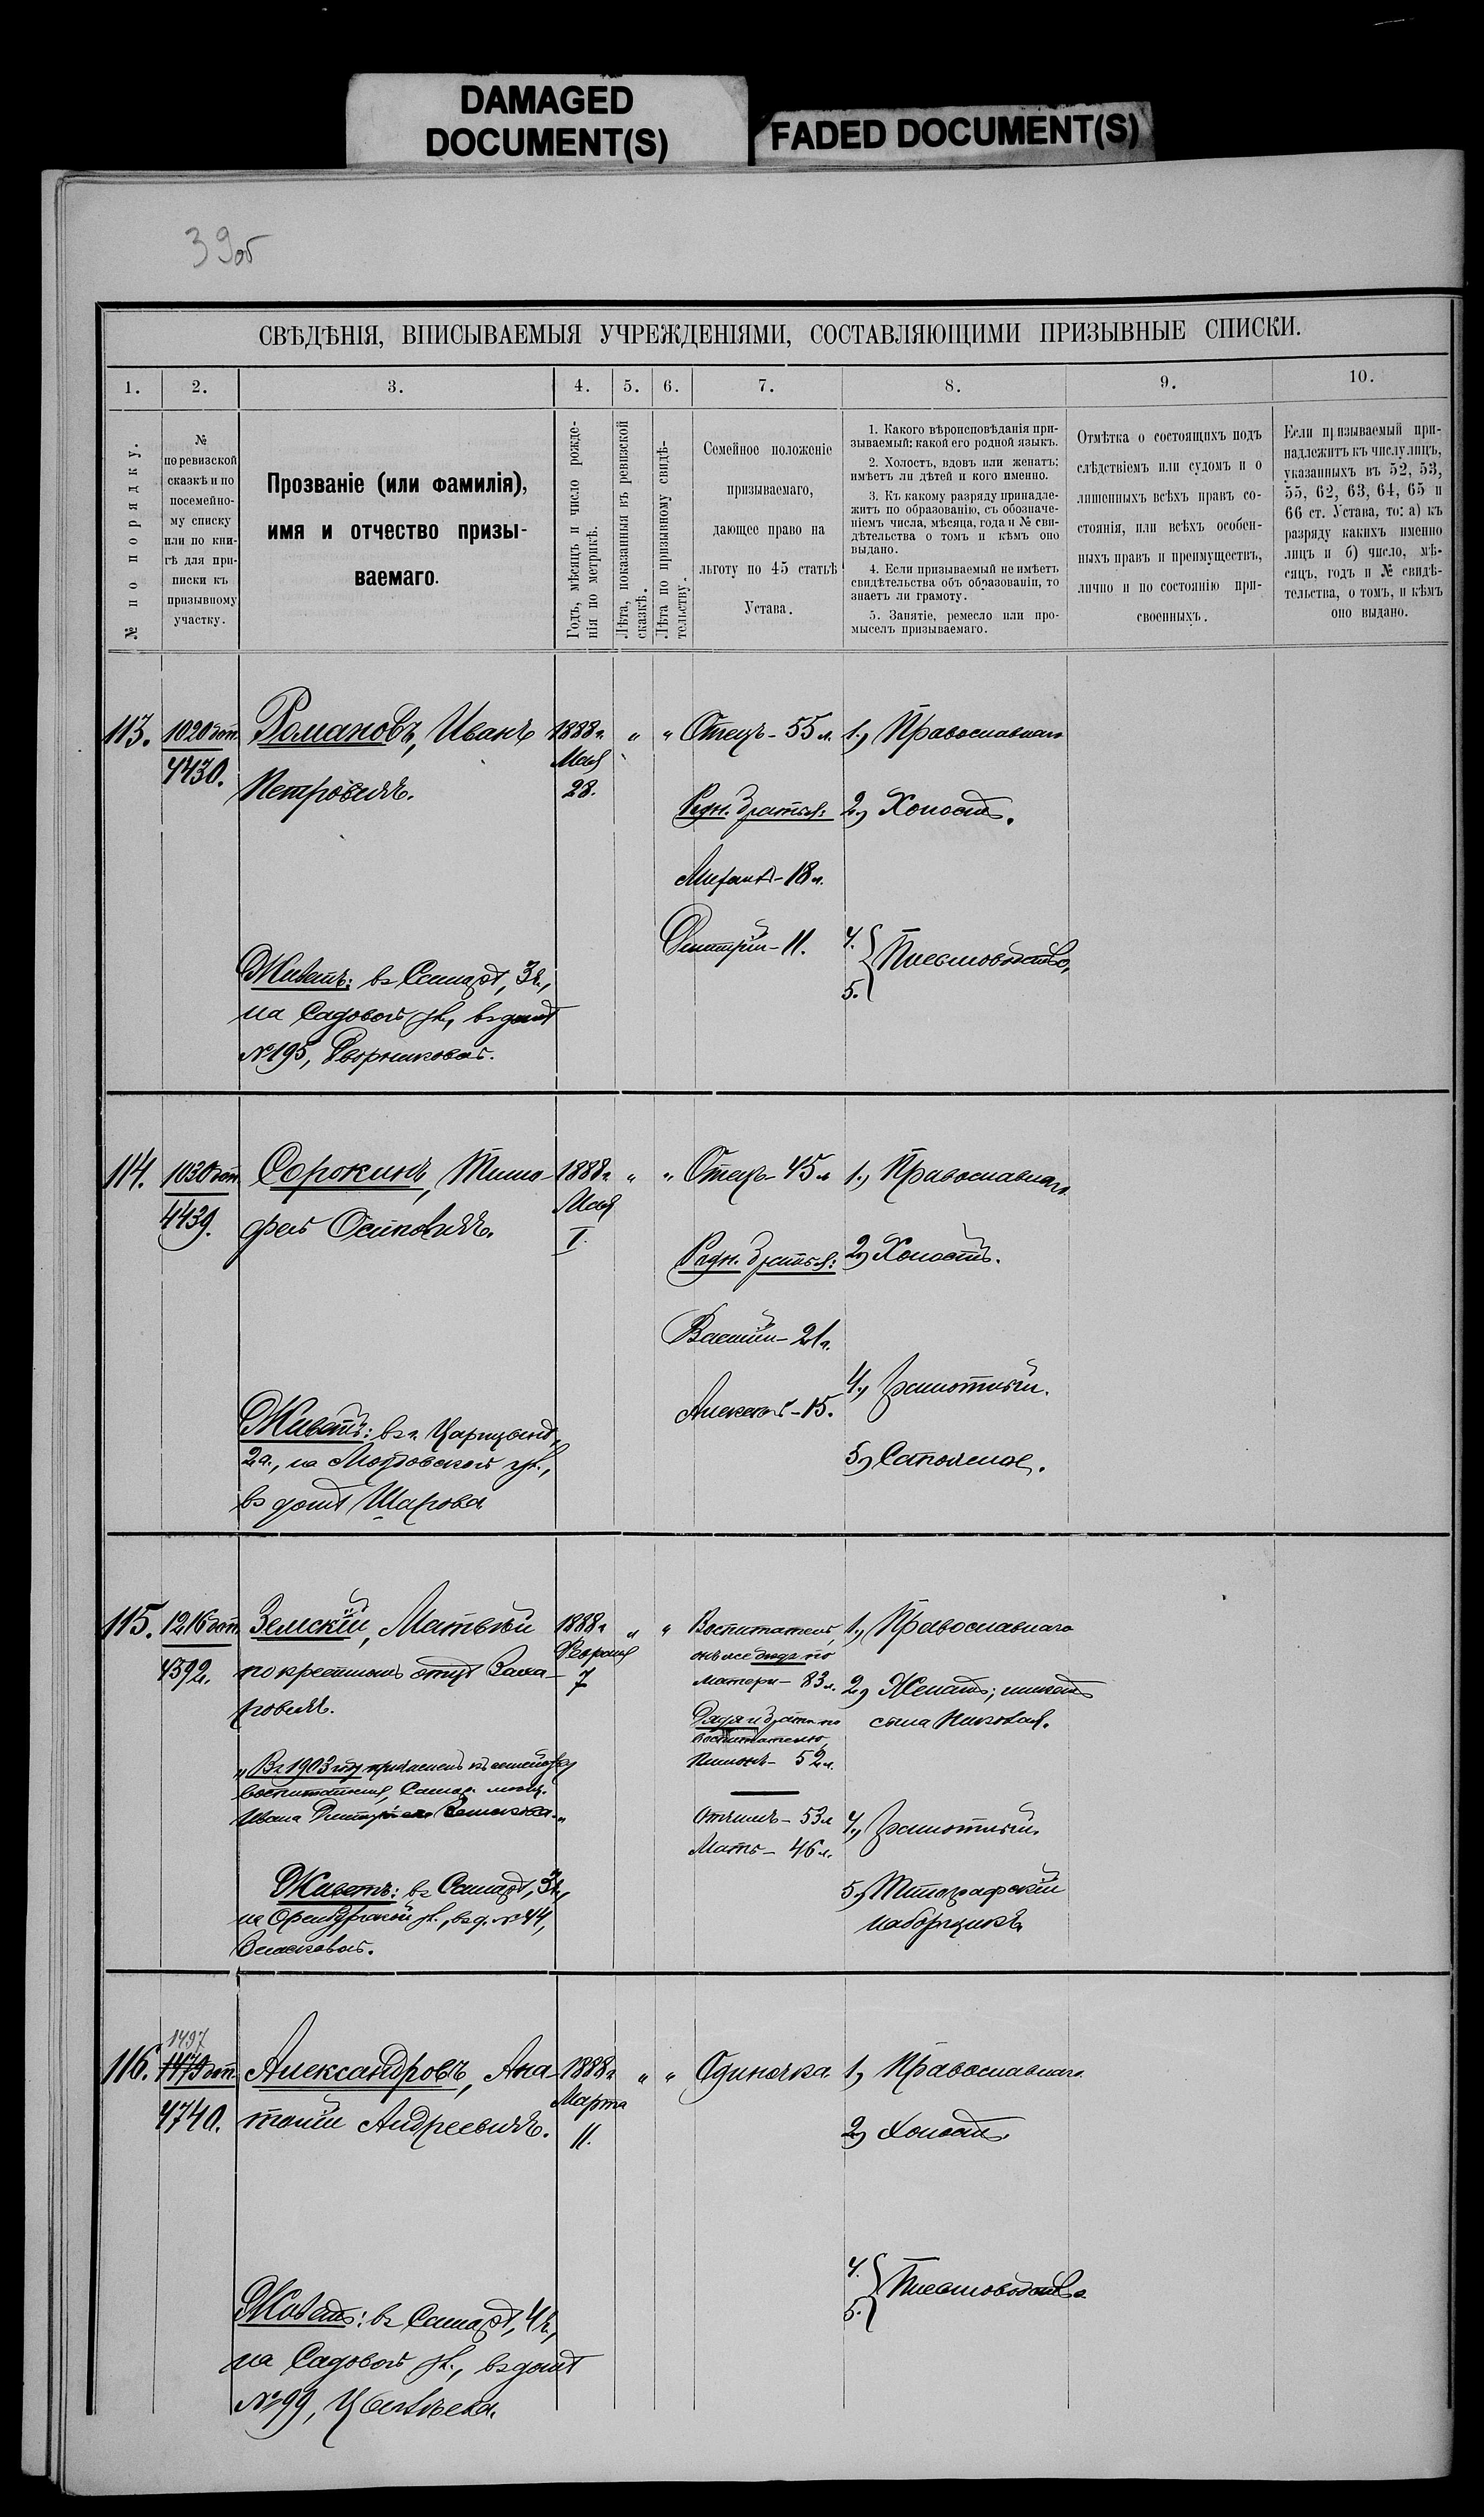 DAMAGED
DOCUMENT(S)
FADED DOCUMENT(S)
39об
СВѢДѢНІЯ, ВПИСЫВАЕМЫЯ УЧРЕЖДЕНІЯМИ, СОСТАВЛЯЮЩИМИ ПРИЗЫВНЫЕ СПИСКИ.
1. 2. 3. 4. 5. 6. 7. 8. 9. 10.
№ по порядку.
№
по ревизской
сказкѣ и по
посемейно-
му списку
или по кни-
гѣ для при-
писки къ
призывному
участку.
Прозваніе (или фамилія),
имя и отчество призы-
ваемаго.
Годъ, мѣсяцъ и число рожде-
нія по метрикѣ.
Лѣта, показанныя въ ревизской
сказкѣ.
Лѣта по призывному свидѣ-
тельству.
Семейное положеніе
призываемаго,
дающее право на
льготу по 45 статьѣ
Устава.
1. Какого вѣроисповѣданія при-
зываемый: какой его родной языкъ.
2. Холостъ, вдовъ или женатъ;
имѣетъ ли дѣтей и кого именно.
3. Къ какому разряду принадле-
житъ по образованію, съ обозначе-
ніемъ числа, мѣсяца, года и № сви-
дѣтельства о томъ и кѣмъ оно
выдано.
4. Если призываемый не имѣетъ
свидѣтельства объ образованіи, то
знаетъ ли грамоту.
5. Занятіе, ремесло или про-
мыселъ призываемаго.
Отмѣтка о состоящихъ подъ
слѣдствіемъ или судомъ и о
лишенныхъ всѣхъ правъ со-
стоянія, или всѣхъ особен-
ныхъ правъ и преимуществъ,
лично и по состоянію при-
своенныхъ.
Если призываемый при-
надлежитъ къ числу лицъ,
указанныхъ въ 52, 53,
55, 62, 63, 64, 65 и
66 ст. Устава, то: а) къ
разряду какихъ именно
лицъ и б) число, мѣ-
сяцъ, годъ и № свидѣ-
тельства, о томъ, и кѣмъ
оно выдано.
113. 1020 доп.
4430.
Романовъ, Иванъ
Петровичъ.
1888г.
Мая
28.
" "
Отецъ - 55 л.
Родн. братья:
Михаилъ - 18 л.
Дмитрій - 11.
1., Православнаго
2., Холостъ.
4.
5.
Письмоводство,
Живетъ: въ Самарѣ, 3ч.,
на Садовой ул., въ домѣ
№195, Дворниковой.
114. 1030 доп.
4439.
Сорокинъ, Тимо-
фей Осиповичъ.
1888г.
Мая
I.
" "
Отецъ - 45 л.
Родн. братья:
Василій - 21 л.
Алексѣй - 15.
1., Православнаго
2., Холостъ.
4., Грамотный.
5., Сапожное.
Живетъ: въ г. Царицынѣ,
2ч., на Молдовской ул.,
въ домѣ Шарова
115. 1216 доп.
4592.
Земскій, Матвѣй
по крестному отцу Заха-
ровичъ.
1888г.
Февраля
7
" "
„Въ 1903 году причисленъ къ семейству
воспитателя, Самар. мѣщ.
Ивана Дмитріева Земскова."
Живетъ: въ Самарѣ, 3ч.,
на Оренбургской ул., въ д. №44,
Власковой.
Воспитатель,
онъ же дядя по
матери - 83 л.
Дядя и братъ по
воспитателю,
Пименъ - 52 л.
Отчимъ - 53 л.
Мать - 46 л.
1., Православнаго
2., Женатъ; имѣетъ
сына Николая.
4., Грамотный.
5., Типографскій
наборщикъ.
116. 1497
1479 доп.
4740.
Александровъ, Ана-
толій Андреевичъ.
1888г.
Марта
11.
" "
Одиночка.
1., Православнаго
2., Холостъ.
4.
5.
Письмоводство
Живетъ: въ Самарѣ, 4ч.,
на Садовой ул., въ домѣ
№99,